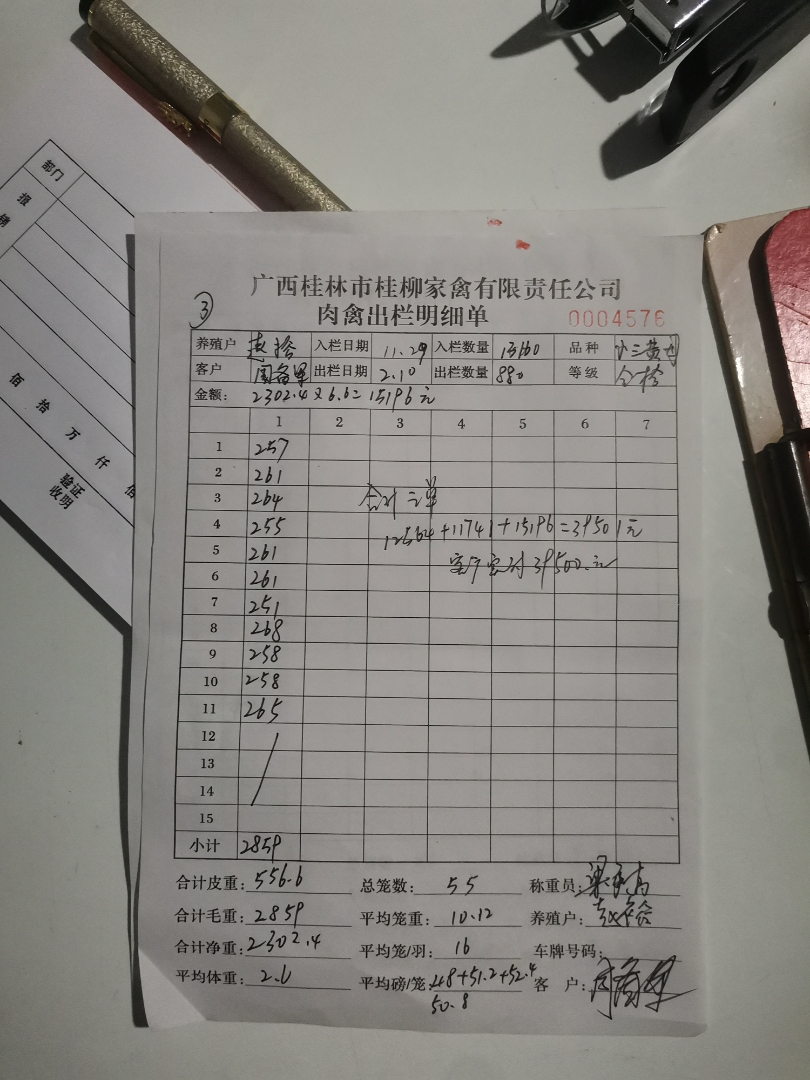 部门
报
销
佰 拾 万 仟 佰
验证
收明
广西桂林市桂柳家禽有限责任公司
③ 肉禽出栏明细单 0004576
养殖户 赵拾 入栏日期 11.29 入栏数量 13160 品种 小三黄
客户 出栏日期 2.10 出栏数量 880 等级
金额: 2302.4×6.6=15196元
1 2 3 4 5 6 7
1 257
2 261
3 264 合计三单
4 255 12564+11741+15196=39501元
5 261 客户实付39500.元
6 261
7 251
8 268
9 258
10 258
11 265
12
13
14
15
小计 2859
合计皮重: 556.6 总笼数: 55 称重员:
合计毛重: 2859 平均笼重: 10.12 养殖户:
合计净重: 2302.4 平均笼/羽: 16 车牌号码:
平均体重: 2.6 平均磅/笼: 48+51.2+52.4 客 户:
50.8